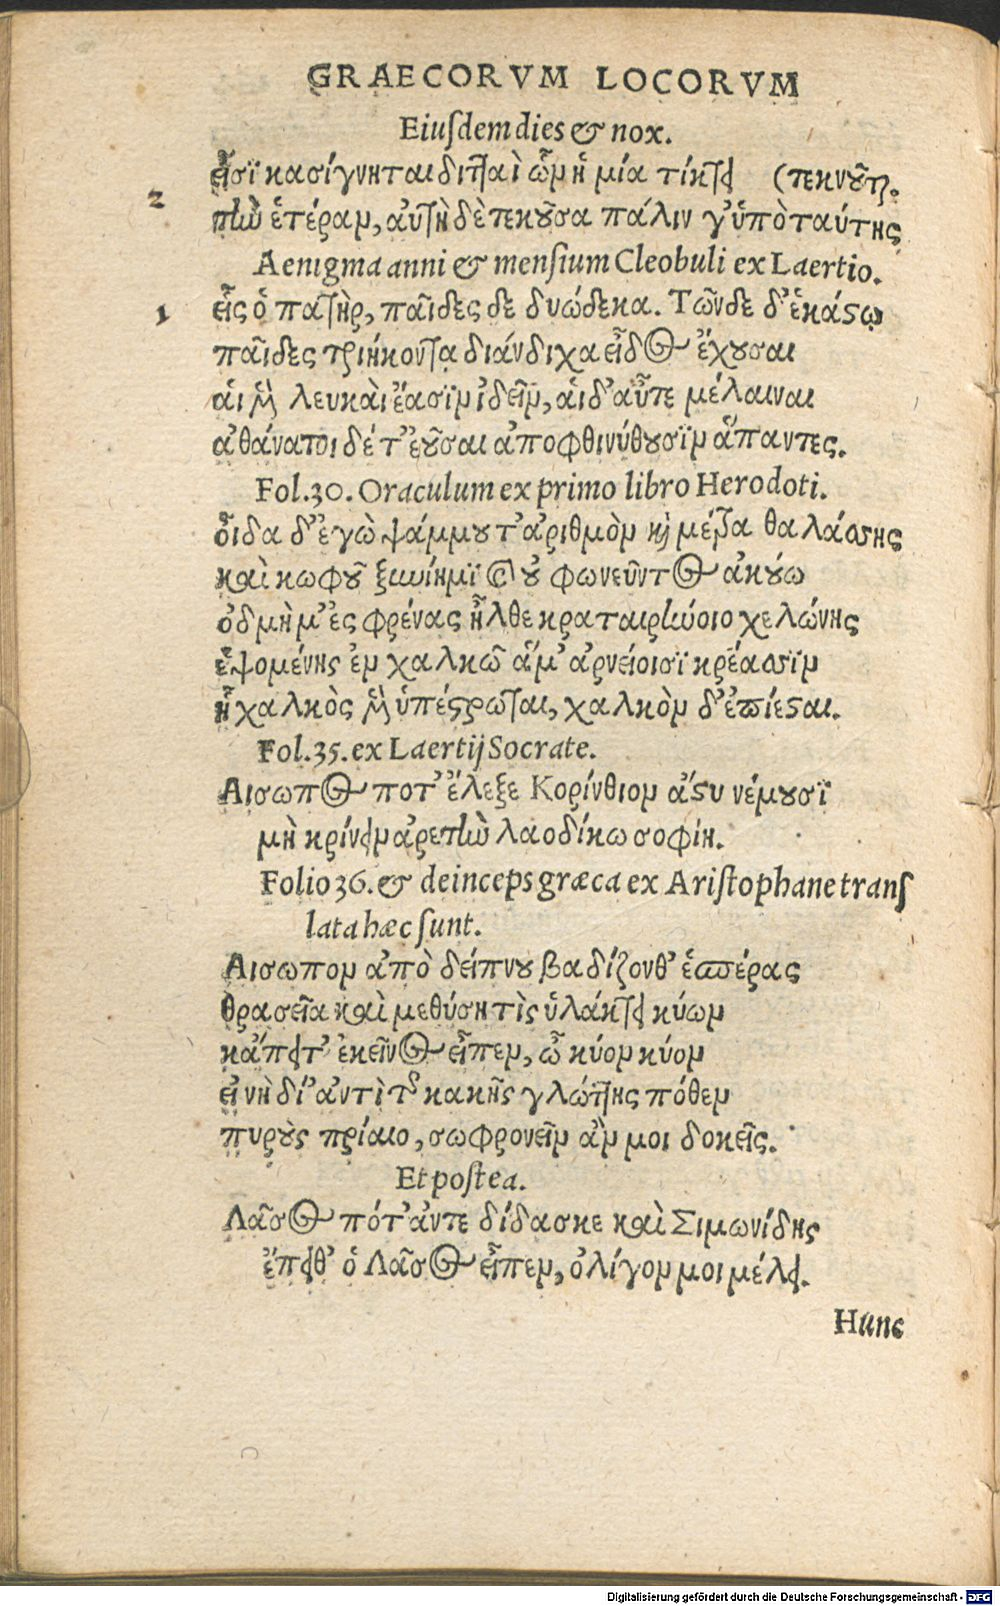 GRAECORVM LOCORVM
Eiusdem dies & nox.
εἰσὶ κασίγνηται διτταὶ ὧν ἡ μία τίκτει (τεκνοῦται.
2 τὴν ἑτέραν, αὐτὴ δὲ τεκοῦσα πάλιν γ' ὑπὸ ταύτης
Aenigma anni & mensium Cleobuli ex Laertio.
1 εἷς ὁ πατὴρ, παῖδες δε δυώδεκα. Τῶνδε δ' ἑκάστῳ
παῖδες τριήκοντα διάνδιχα εἶδος ἔχουσαι
αἱ μὲν λευκαὶ ἔασιν ἰδεῖν, αἱ δ' αὖτε μέλαιναι
ἀθάνατοι δέ τ' ἐοῦσαι ἀποφθινύθουσιν ἅπαντες.
Fol.30. Oraculum ex primo libro Herodoti.
οἶδα δ' ἐγὼ ψάμμου τ' ἀριθμὸν καὶ μέτρα θαλάσσης
καὶ κωφοῦ ξυνίημι καὶ οὐ φωνεῦντος ἀκούω
ὀδμὴ μ' ἐς φρένας ἦλθε κραταιρίνοιο χελώνης
ἑψομένης ἐν χαλκῶ ἅμ' ἀρνείοισι κρέασσιν
ᾗ χαλκὸς μὲν ὑπέστρωται, χαλκὸν δ' ἐπίεσται.
Fol.35. ex Laertij Socrate.
Αισωπος ποτ' ἔλεξε Κορίνθιον ἄστυ νέμουσι
μὴ κρίνειν ἀρετὴν λαοδίκω σοφίη.
Folio 36. & deinceps græca ex Aristophane trans
lata hæc sunt.
Αισωπον ἀπὸ δείπνου βαδίζονθ' ἑσπέρας
θρασεῖα καὶ μεθύση τὶς ὑλάκτει κύων
κἄπειτ' ἐκεῖνος εἶπεν, ὦ κύον κύον
εἰ νὴ δί' ἀντὶ τῆς κακῆς γλώττης πόθεν
πυροὺς πρίαιο, σωφρονεῖν ἂν μοι δοκεῖς.
Et postea.
Λᾶσος πότ' ἀντεδίδασκε καὶ Σιμωνίδης
ἔπειθ' ὁ Λᾶσος εἶπεν, ὀλίγον μοι μέλει.
Hunc
Digitalisierung gefördert durch die Deutsche Forschungsgemeinschaft - DFG